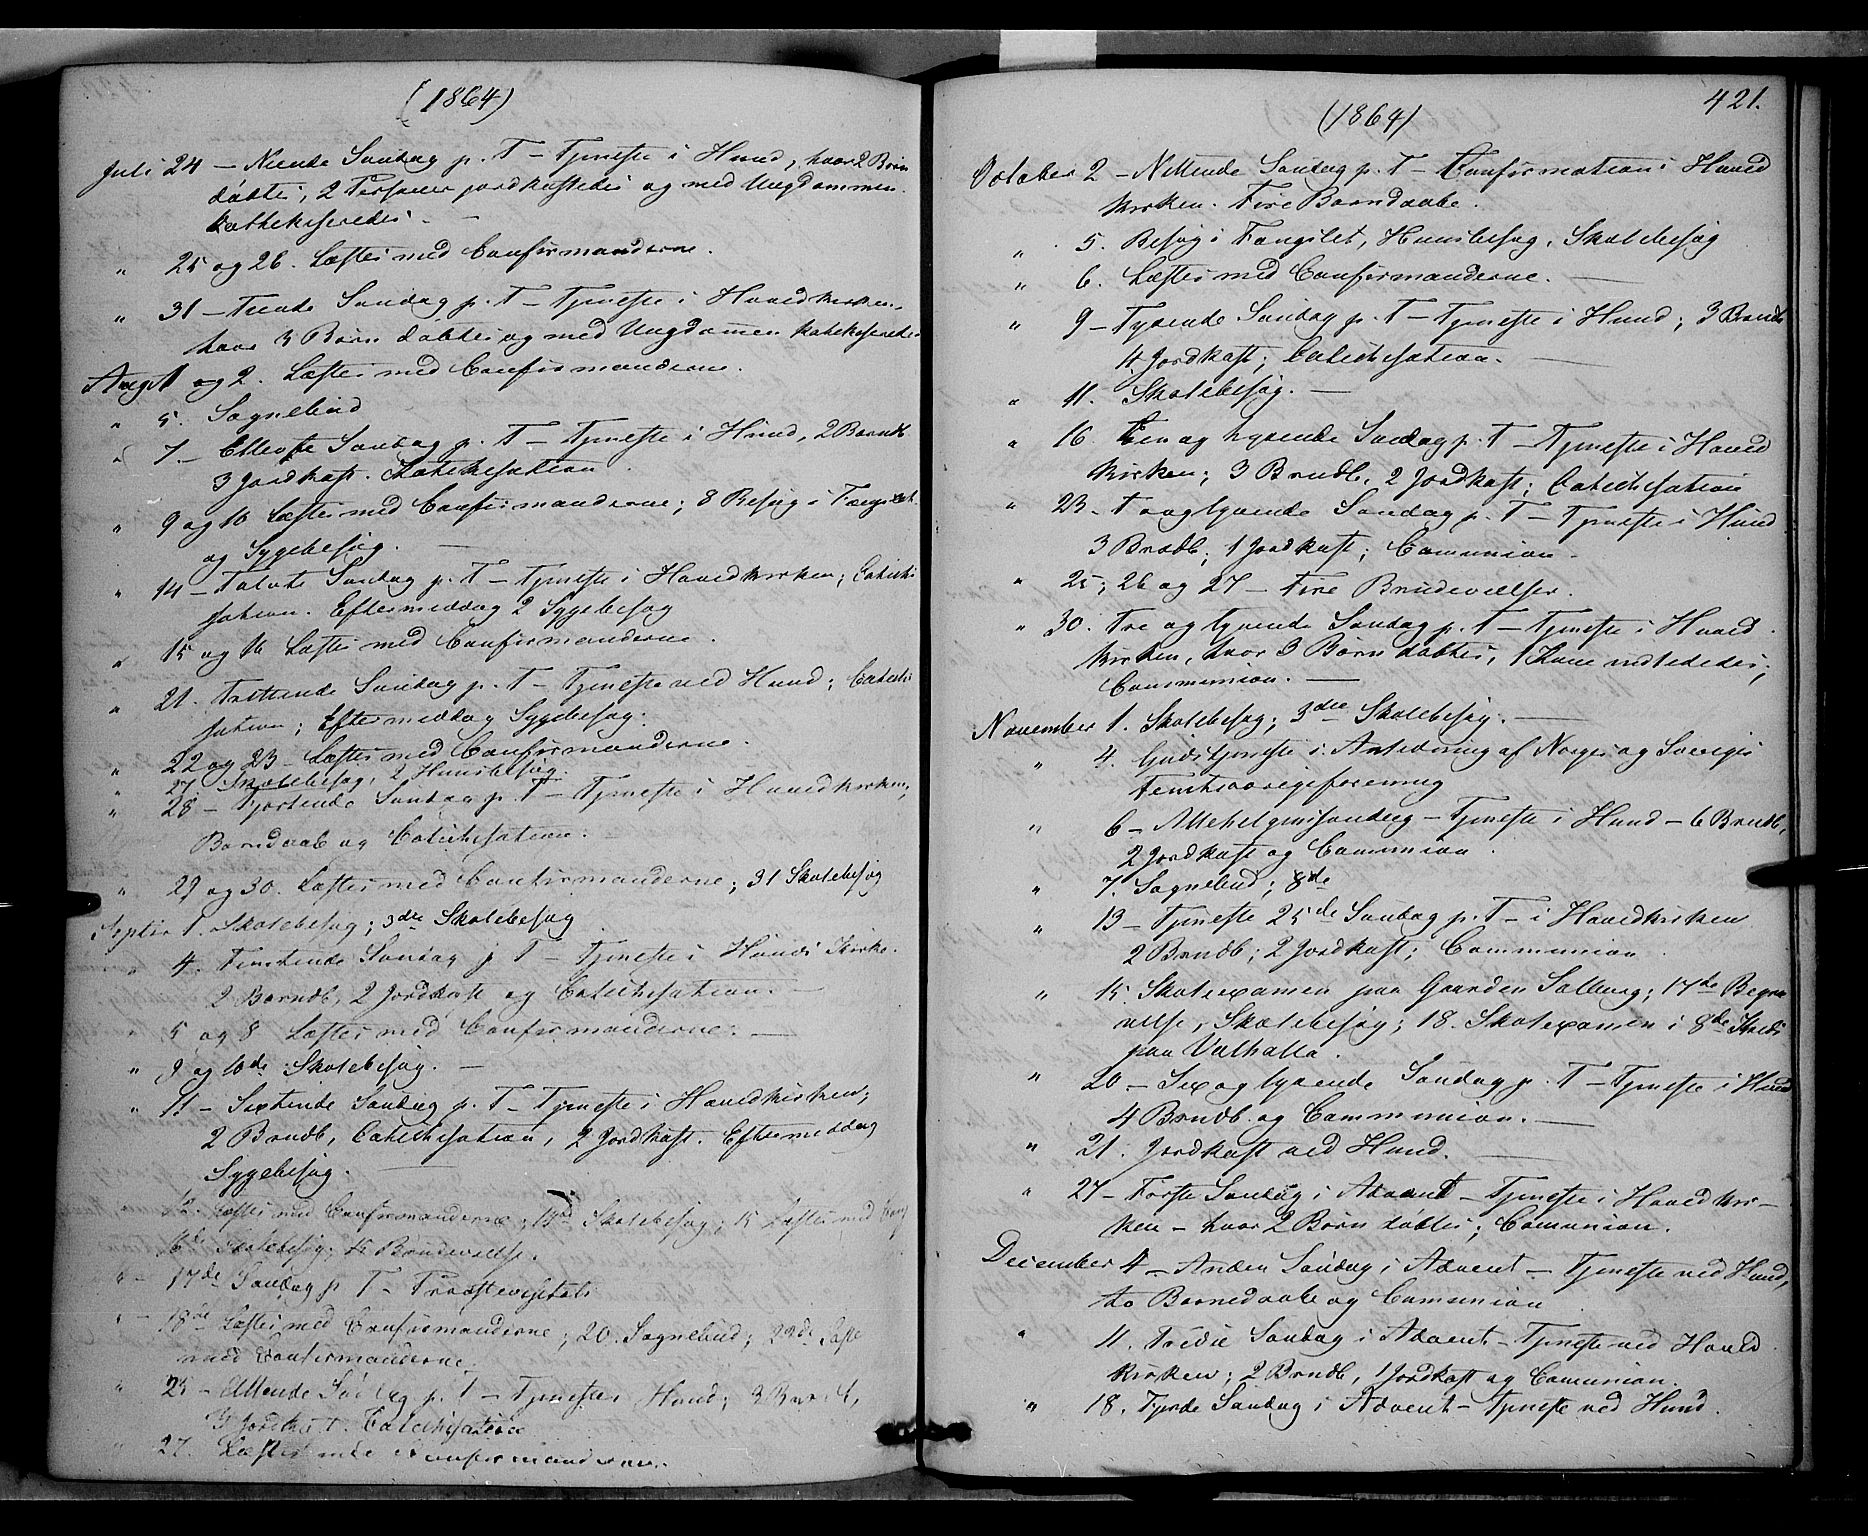 (1864)
Juli 24 – Niende Søndag p. T – Tjeneste i Hund, hvor 2 Børn
døbtes, 2 Personer jordkastedes og med Ungdommen
kathekiseredes. –
" 25 og 26. Læstes med Confirmanderne.
" 31 – Tiende Søndag p. T – Tjeneste i Hovedkirken,
hvor 3 Børn døbtes og med Ungdomen katekiseredes
Aug. 1 og 2. Læstes med Confirmanderne.
" 5. Sognebud
" 7 – Ellevte Søndag p. T – Tjeneste i Hund, 2 Barndb.
3 Jordkast. Katekisation.
" 9 og 10 Læstes med Confirmanderne; 8 Besøg i Fængslet
og Sygebesøg. –
" 14 – Tolvte Søndag p. T – Tjeneste i Hovedkirken; Catechi
sation. Eftermiddag 2 Sygebesøg
" 15 og 16 Læstes med Confirmanderne.
" 21. Trettende Søndag p. T – Tjeneste ved Hund; Catechi
sation; Eftermiddag Sygebesøg.
" 22 og 23 – Læstes med Confirmanderne.
" 27 Skolebesøg, 2 Huusbesøg.
" 28 – Fjortende Søndag p. T – Tjeneste i Hovedkirken,
Barndaab og Catechisation.
" 29 og 30. Læstes med Confirmanderne; 31 Skolebesøg
Septbr 1. Skolebesøg; 3die Skolebesøg
" 4. Femtende Søndag p T – Tjeneste i Hunds Kirke.
2 Barndb, 2 Jordkast og Catechisation. –
" 5 og 8 Læstes med Confirmanderne. –
" 9 og 10de Skolebesøg. –
" 11 – Sextende Søndag p. T – Tjeneste i Hovedkirken;
2 Brndb, Catechisation, 2 Jordkast. Eftermiddag
Sygebesøg. –
" 12. Læstes med Confirmanderne; 14de Skolebesøg; 15 Læstes med Conf
16de Skolebesøg; Brudevielse.
" – 17de Søndag p T – Provstevisitats
" – 18de Læstes med Confirmanderne; 20. Sognebud; 22de Læste
med Confirmanderne.
" 25 – Attende Søndag p. T – Tjeneste i Hund; 3 Barndb,
3 Jordkast. Catechisation
" 27. Læstes med Confirmanderne.
421.
(1864)
October 2 – Nittende Søndag p. T – Confirmation i Hoved
kirken. Fire Barndaabe.
" 5. Besøg i Fængslet, Huusbesøg, Skolebesøg
" 6. Læstes med Confirmanderne. –
" 9 – Tyvende Søndag p. T – Tjeneste i Hund; 3 Brndb
4 Jordkast; Catechisation. –
" 11. Skolebesøg. –
" 16. Een og tyvende Søndag p. T – Tjeneste i Hoved
kirken; 3 Brndb, 2 Jordkast; Catechisation
" 23. To og tyvende Søndag p. T – Tjeneste i Hund
3 Brndb; 1 Jordkast; Comunion –
" 25; 26 og 27 – Fire Brudevielser.
" 30. Tre og tyvende Søndag p. T – Tjeneste i Hoved
kirken, hvor 3 Børn døbtes, 1 Kone indlededes;
Communion. –
November 1. Skolebesøg; 3die Skolebesøg. –
" 4. Gudstjeneste i Anledning af Norges og Sveriges
Femtiaarigeforening
" 6 – Allehelgensøndag – Tjeneste i Hund – 6 Brndb,
2 Jordkast og Comunion.
" 7. Sognebud; 8de
" 13 – Tjeneste 25de Søndag p. T – i Hovedkirken
2 Brndb; 2 Jordkast; Communion.
" 15. Skoleexamen paa Gaarden Solberg; 17de Begra
velse, Skolebesøg; 18. Skolexamen i 8de Kreds
paa Valhalla.
" 20 – Sex og tyvende Søndag p. T – Tjeneste i Hund
4 Brndb. og Communion. –
" 21. Jordkast ved Hund. –
" 27 – Første Søndag i Advent – Tjeneste i Hovedkir–
ken – hvor 2 Børn døbtes; Comunion.
December 4 – Anden Søndag i Advent – Tjeneste ved Hund,
to Barnedaabe og Comunion
" 11. Tredie Søndag i Advent – Tjeneste ved Hoved
kirken; 2 Brndb, 1 Jordkast og Comunion.
" 18. Fjerde Søndag i Advent – Tjeneste ved Hund.